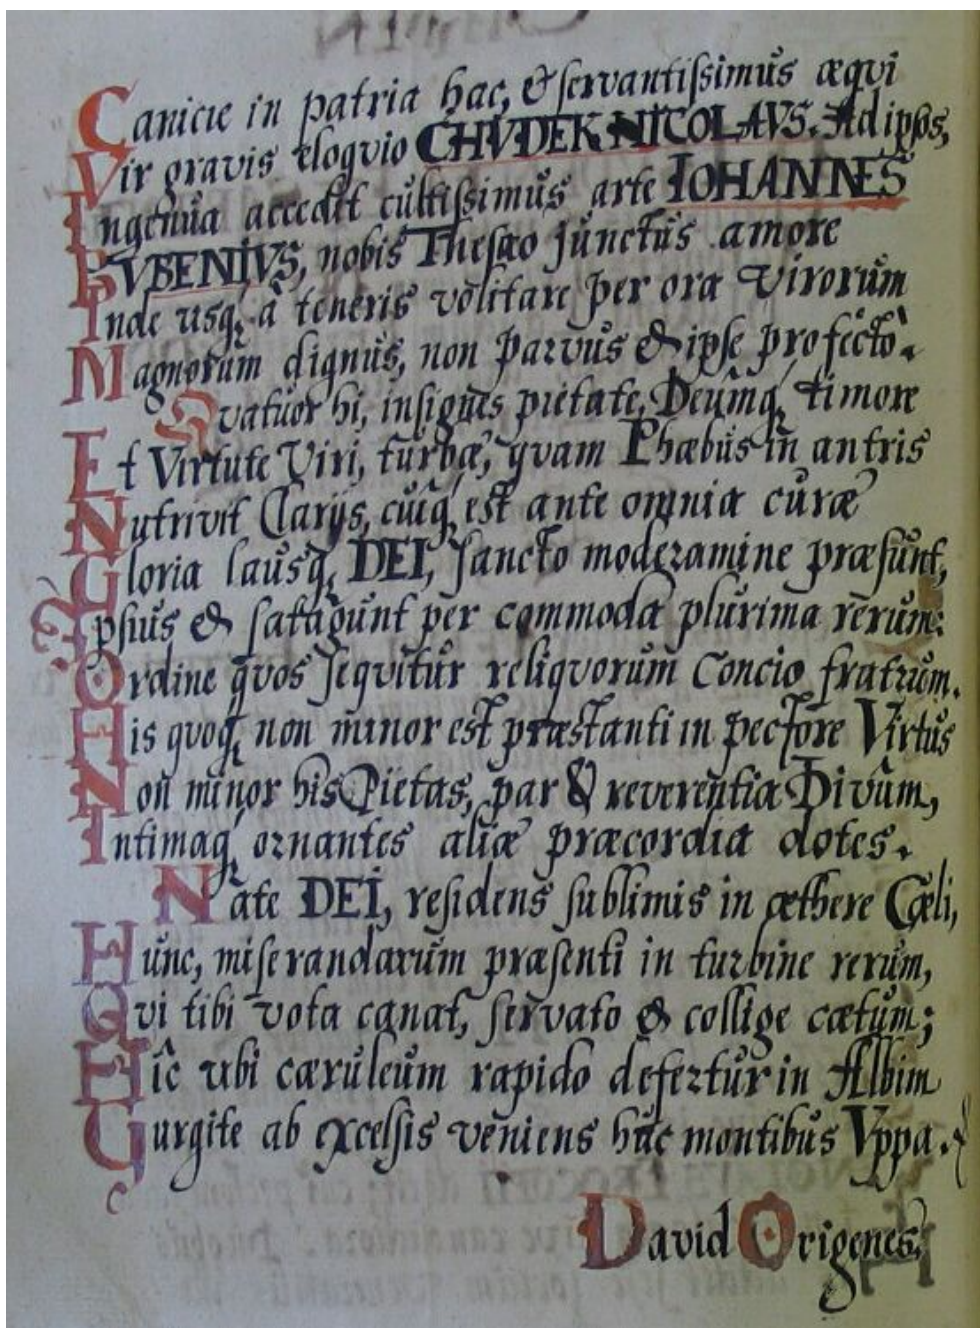 Canicie in patria hac, & servantissimus æqui
Vir gravis eloquio CHVDEK NICOLAVS. Ad ipsos,
Ingenua accedit cultissimus arte IOHANNES
BVBENIVS, nobis Thesæo junctus amore
Inde usq; â teneris volitare per ora Virorum
Magnorum dignus, non parvus & ipse profectò.
Quatuor hi, insignes pietate, Deûmq; timore
Et Virtute Viri, turbæ, qvam Phæbus in antris
Nutrivit Clarijs, cuiq; est ante omnia curæ
Gloria lausq; DEI, sancto moderamine præsunt,
Ipsius & satagunt per commoda plurima rerum:
Ordine qvos seqvitur reliqvorum Concio fratrum.
His qvoq; non minor est præstanti in pectore Virtus
Non minor his Pietas, par & reverentia Divûm,
Intimaq; ornantes aliæ præcordia dotes.
Nate DEI, residens sublimis in æthere Cæli,
Hunc, miserandarum præsenti in turbine rerum,
Qvi tibi vota canat, servato & collige cætum;
Hîc ubi cæruleum rapido defertur in Albim
Gurgite ab excelsis veniens huc montibus Vppa.
David Origenes.